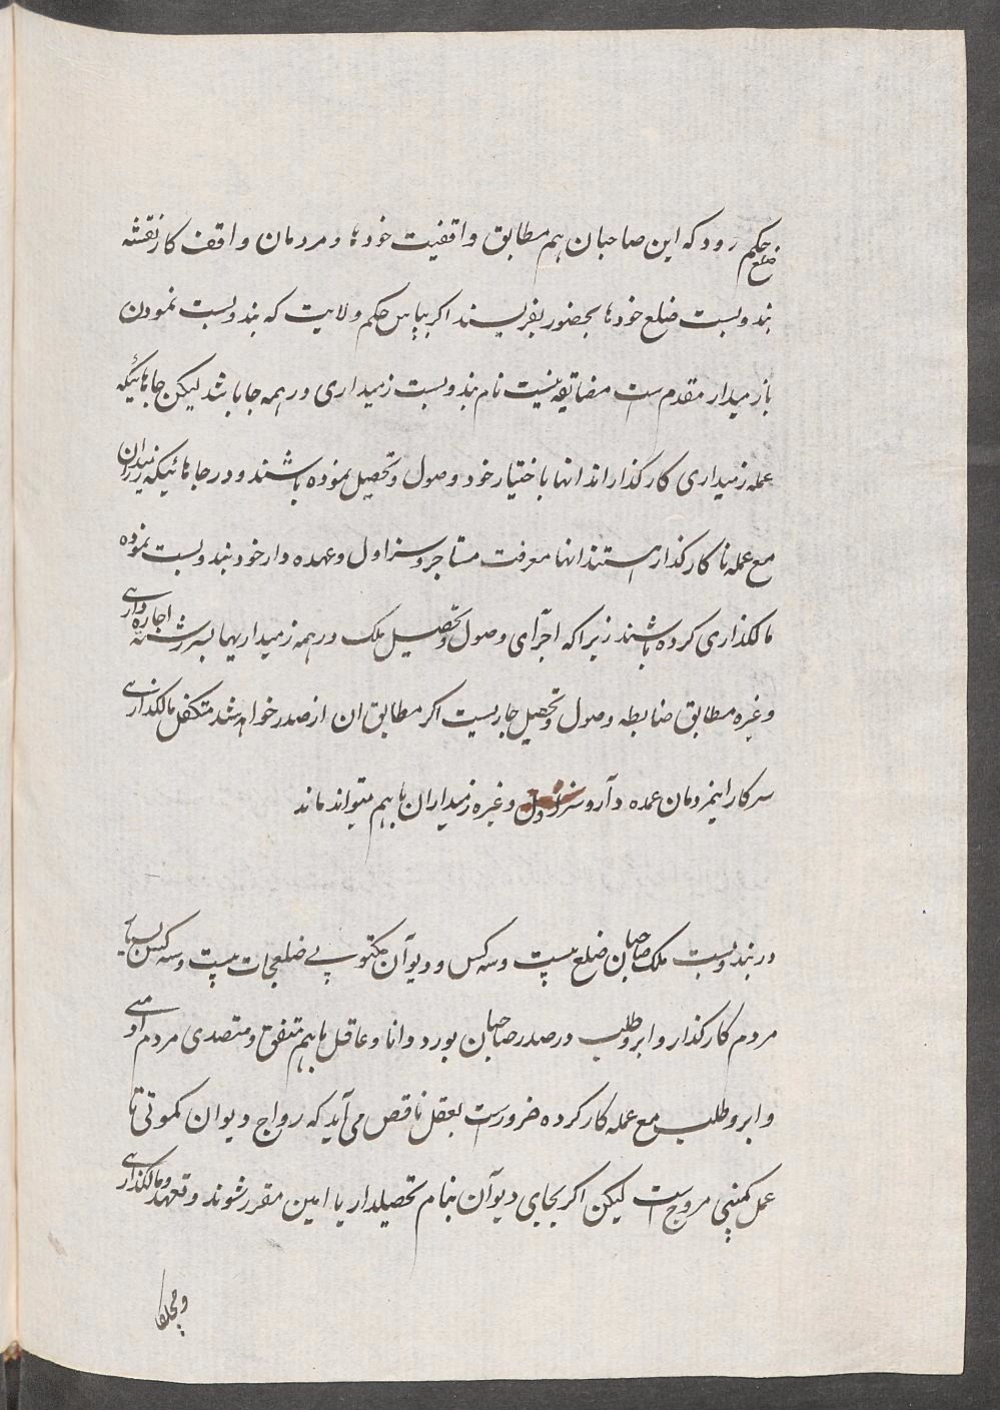 حکم رود که این صاحبان هم مطابق واقفیت خودها و مردمان واقف کار نقشه
ضلع
بندوبست ضلع خودها بحضور بفریسند اکر بپاس حکم ولایت که بندوبست نمودن
بازمیدار مقدم ست مضایقه نیست نام بندوبست زمیداری در همه جا باشد لیکن جاهائیکه
عمله زمیداری کارکذار اند انها باختیار خود وصول و تحصیل نموده باشند و در جاهائیکه زمیداران
مع عمله ناکارکذار هستند انها معرفت مستاجر و سزاول و عهده دار خود بندوبست نموده
مالکذاری کرده باشند زیرا که اجرای وصول و تحصیل ملک در همه زمیداریها بسررشته اجاره داری
وغیره مطابق ضابطه وصول و تحصیل جاریست اکر مطابق ان از صدر خواهد شد متکفل مالکذاری
سرکار اینمردمان عمده دار و سزاول وغیره زمیداران باهم میتواند ماند
در بندوبست ملک صاحبان ضلع بیست وسه کس و دیوان مکتوبی ضلعجات بیست وسه کس
مردم کارکذار و ابروطلب در صدر صاحبان بورد دانا و عاقل باهم متفق و متصدی مردم ادمی
و ابروطلب مع عمله کار کرده ضرورست بعقل ناقص می آید که رواج دیوان کموتی تا
عمل کمپنی مروج ست لیکن اکر بجای دیوان بنام تحصیلدار یا امین مقرر شوند و تعهد مالکذاری
و مچلکا